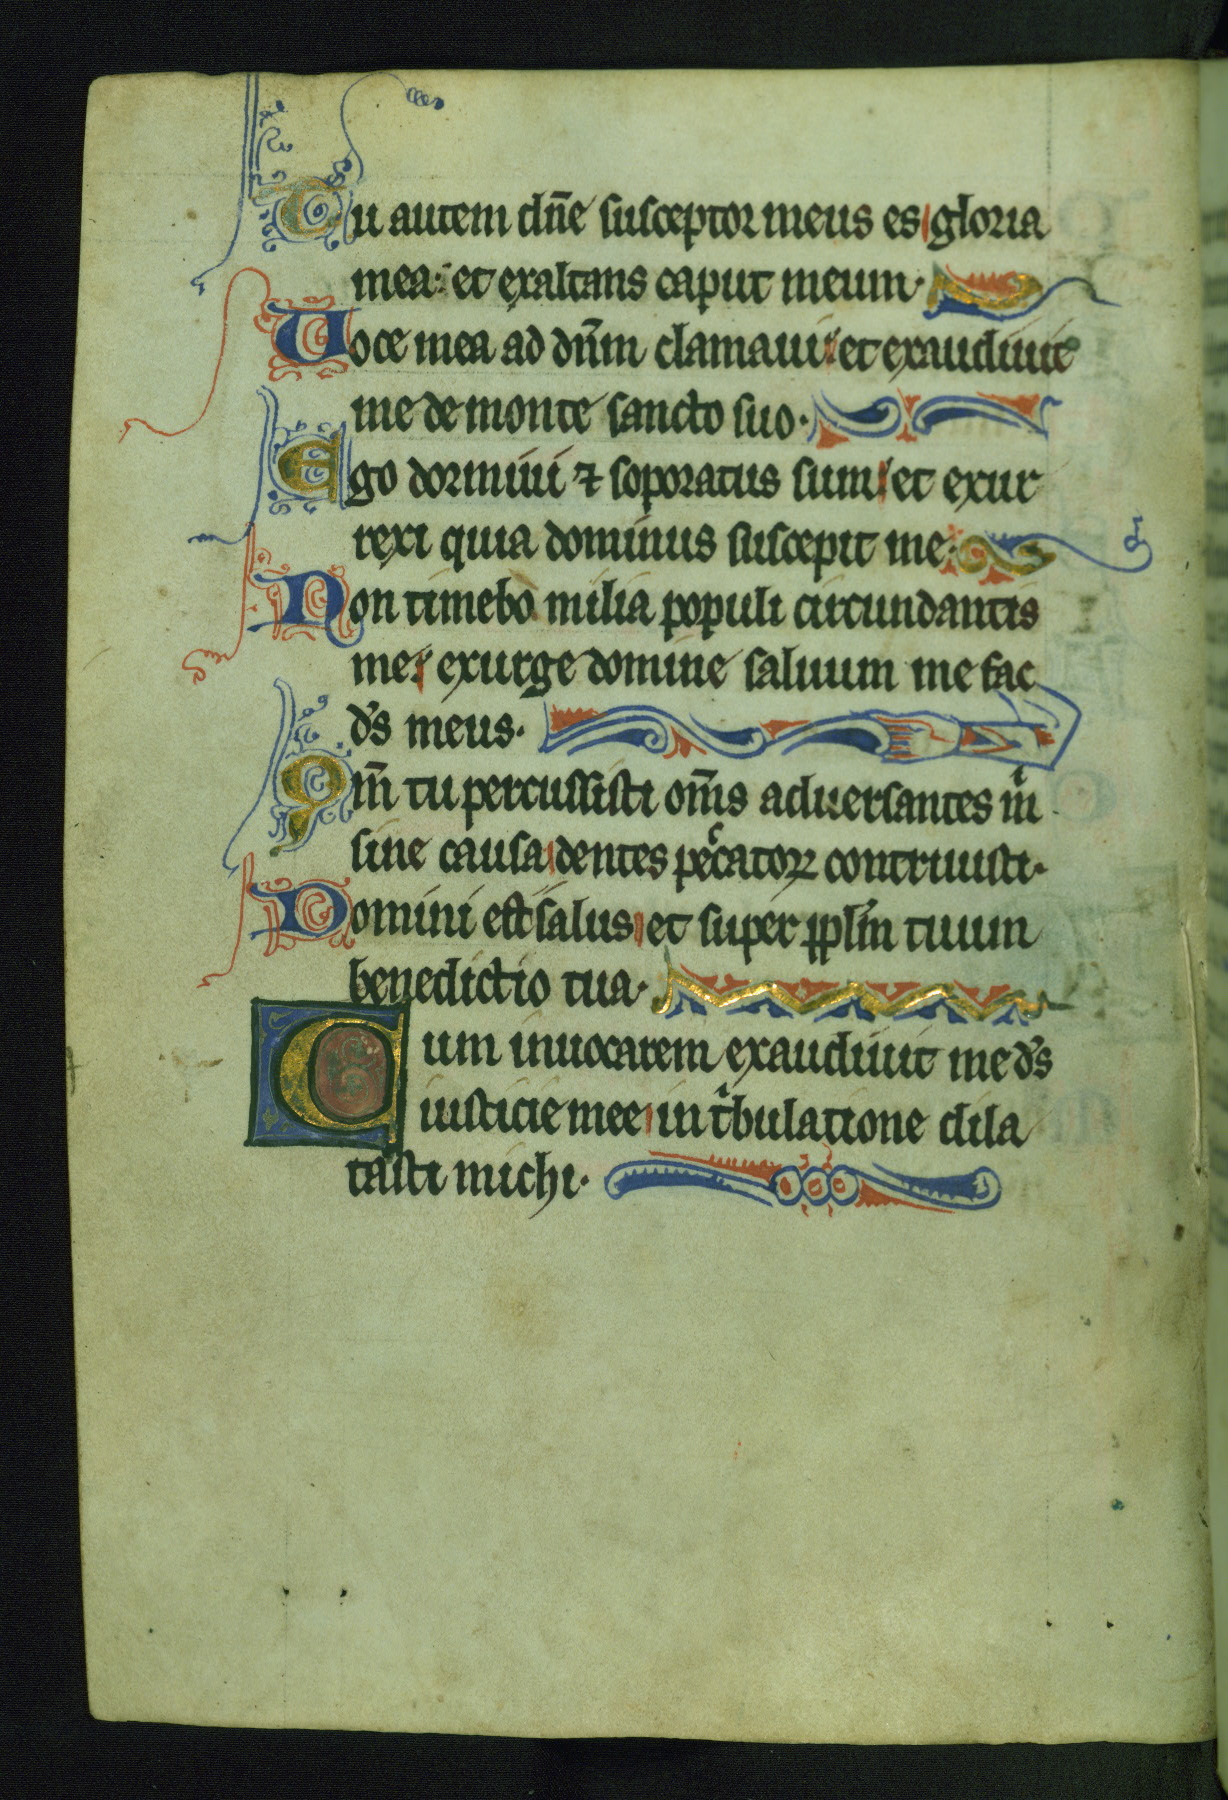 Tu autem dn̄e susceptor meus es gloria
mea: et exaltans caput meum·
Voce mea ad dn̄m clamaui: et exaudiuit
me de monte sancto suo·
Ego dormiui ⁊ soporatus sum: et exur
rexi quia dominus suscepit me·
Non timebo milia populi circundantis
me: exurge domine saluum me fac
ds̄ meus·
Qm̄ tu percussisti om̄s aduersantes m̍
sine causa dentes peccatoꝝ contriuisti·
Domini est salus et super ppl̄m tuum
benedictio tua·
Cum inuocarem exaudiuit me ds̄
iusticie mee in tͥbulatione dila
tasti michi·